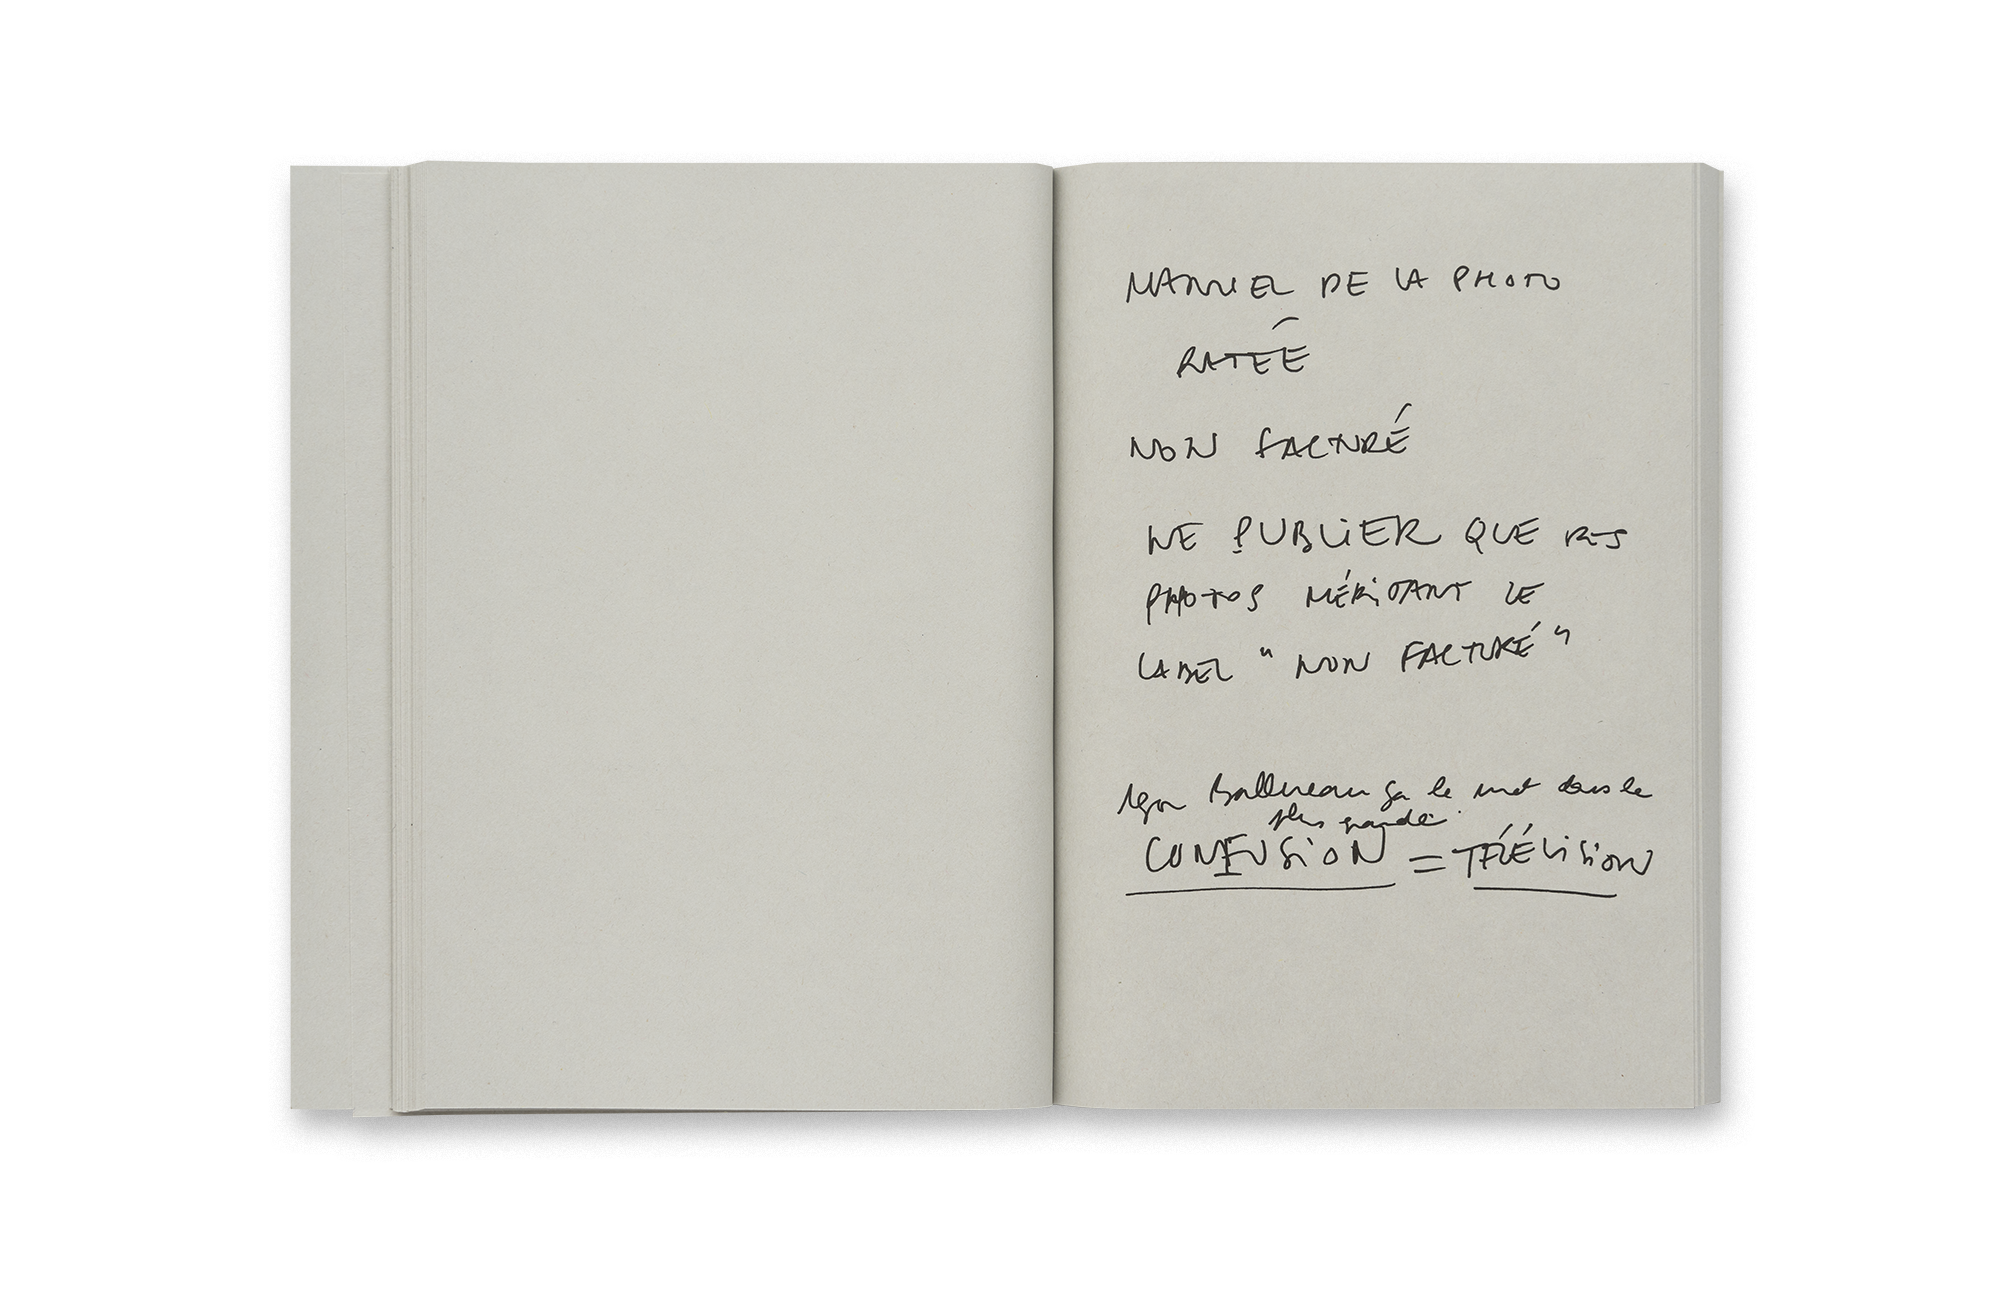 MANUEL DE LA PHOTO
RATÉE
NON FACTURÉ
NE PUBLIER QUE DES
PHOTOS MÉRITANT LE
LABEL " NON FACTURÉ "
ça le met dans le
plus grande
CONFUSION = TÉLÉVISION